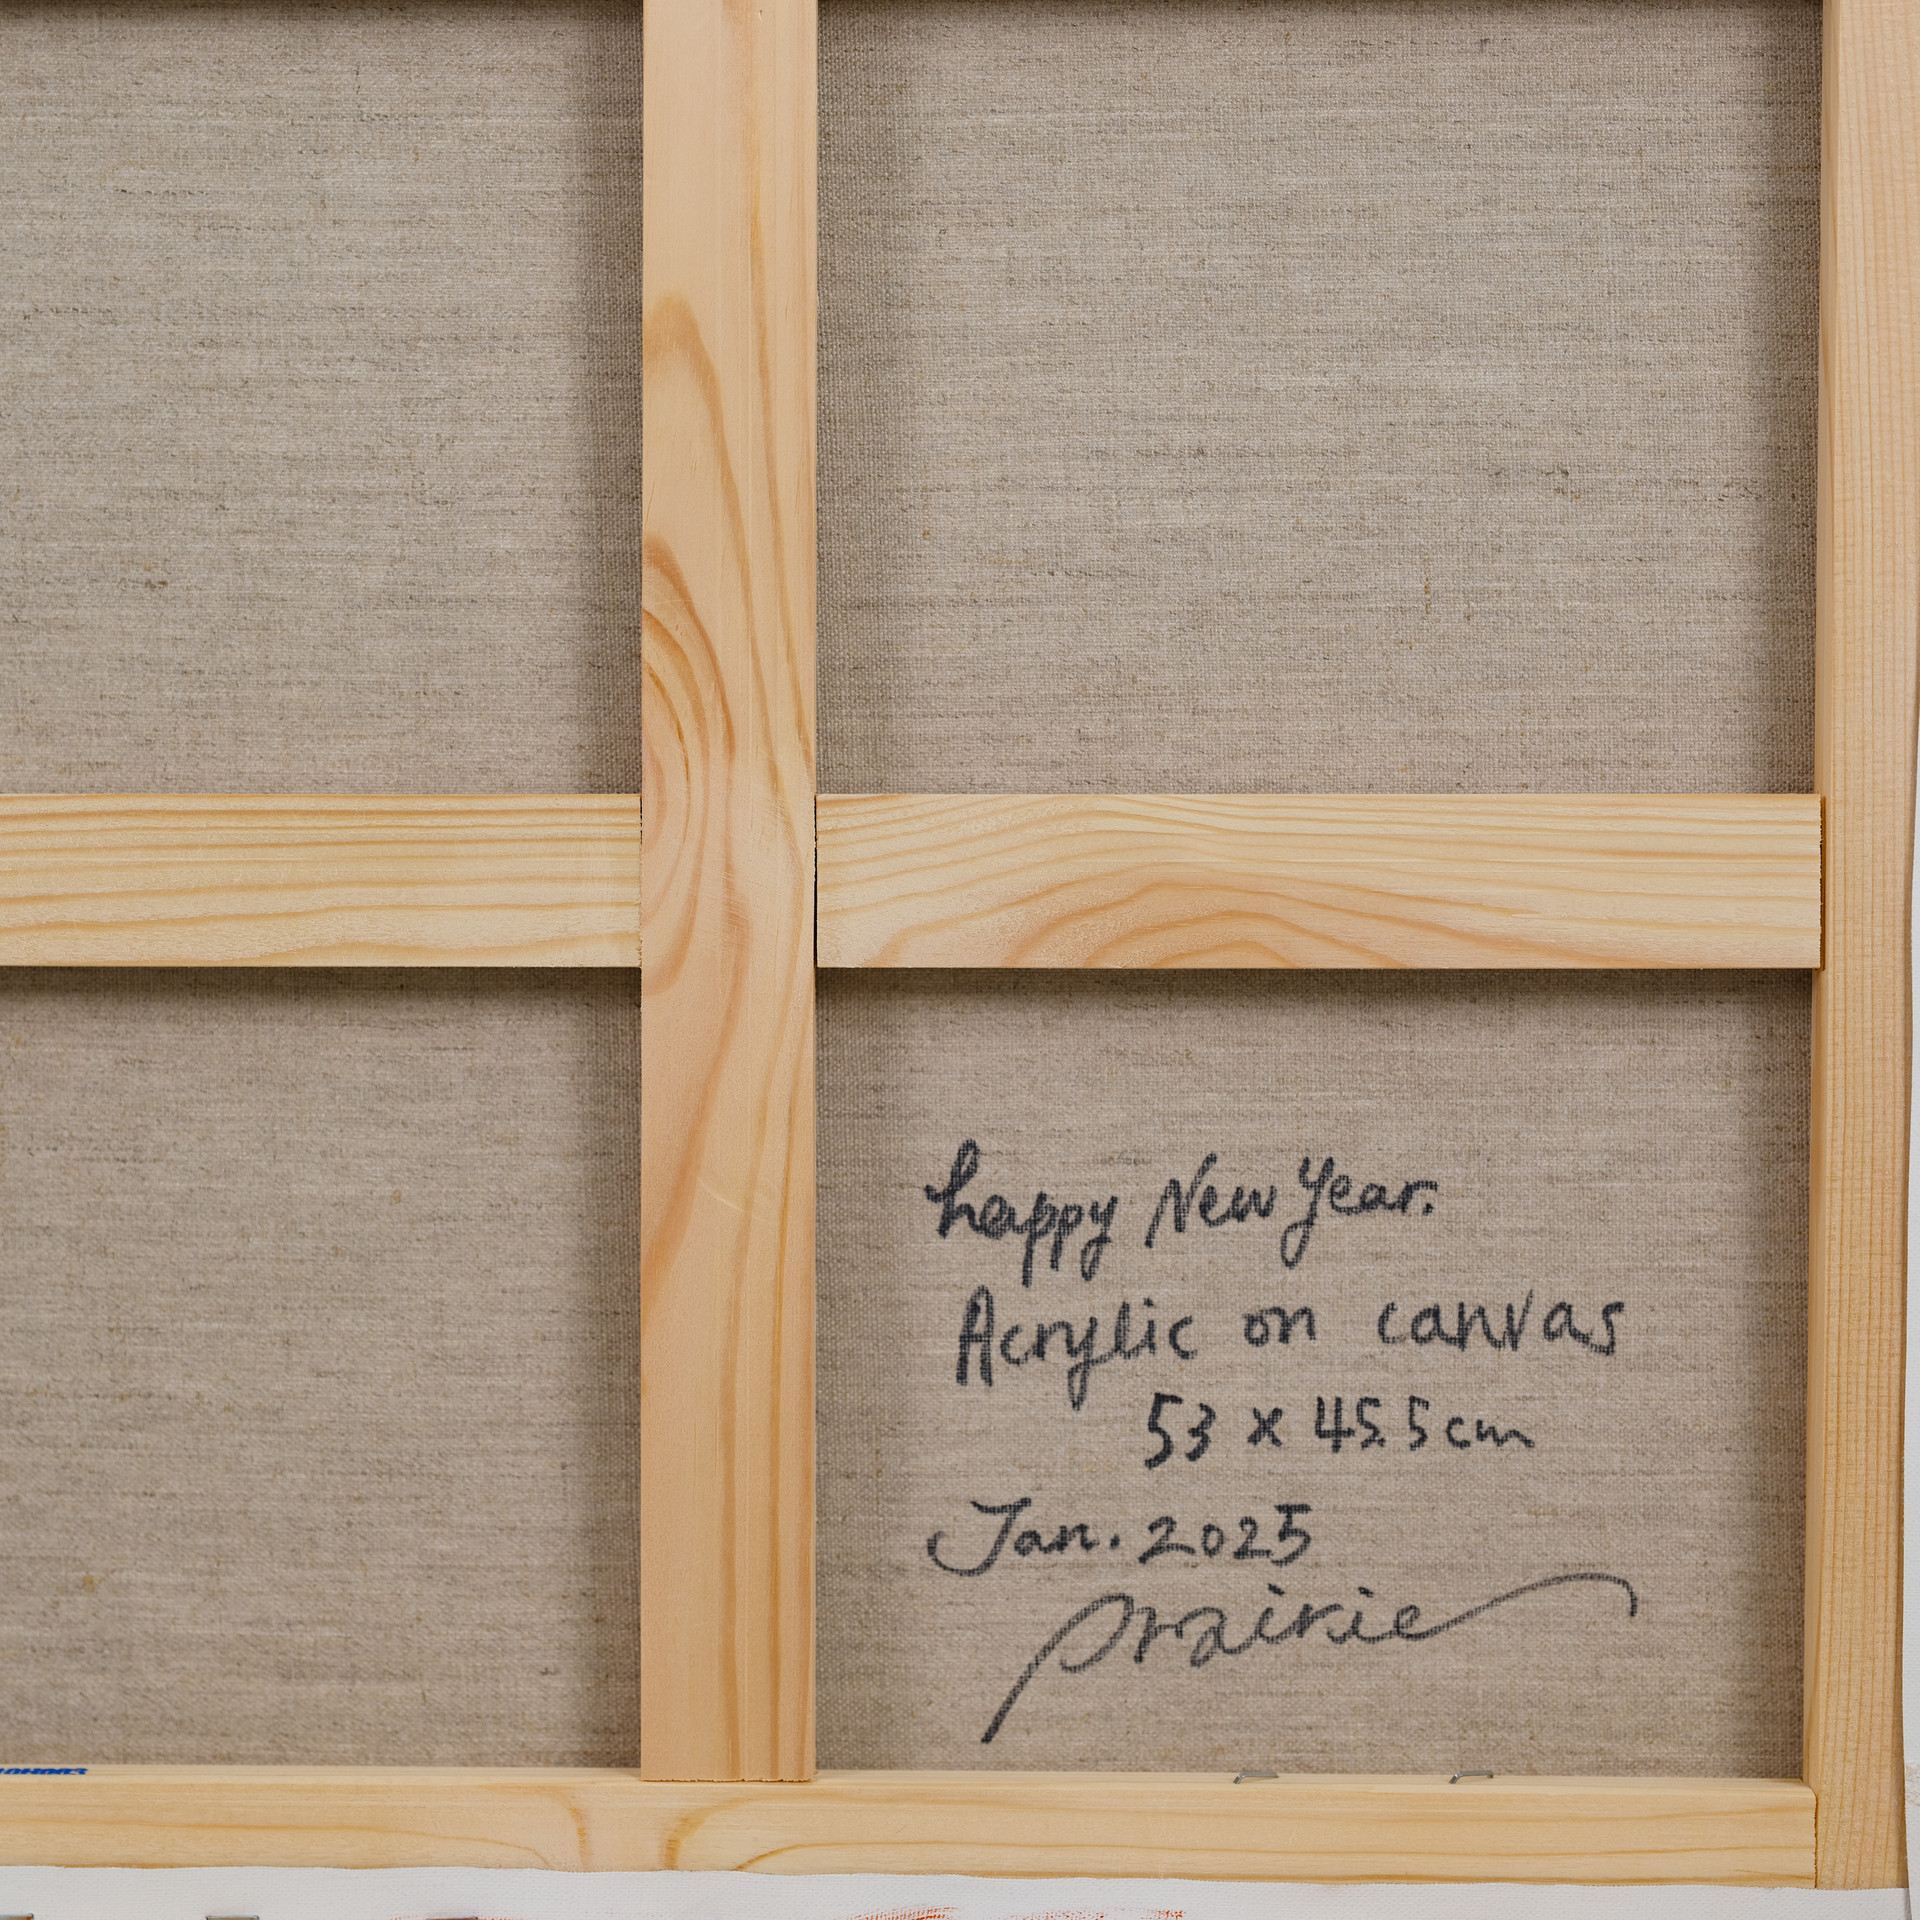 happy New Year.
Acrylic on canvas
53 x 45.5cm
Jan. 2025
prairie